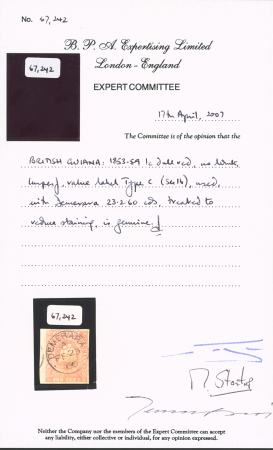 No. 67,242
B. P. A. Expertising Limited
London - England
67,242
EXPERT COMMITTEE
17th April, 2007
The Committee is of the opinion that the
BRITISH GUIANA: 1853-59 1c dull red, no
imperf, value label Type C (SG16), used,
with Demerara 23-2-60 cds, treated to
reduce staining, is genuine.
67,242
DEMERARA
Neither the Company nor the members of the Expert Committee can accept
any liability, either collective or individual, for any opinion expressed.